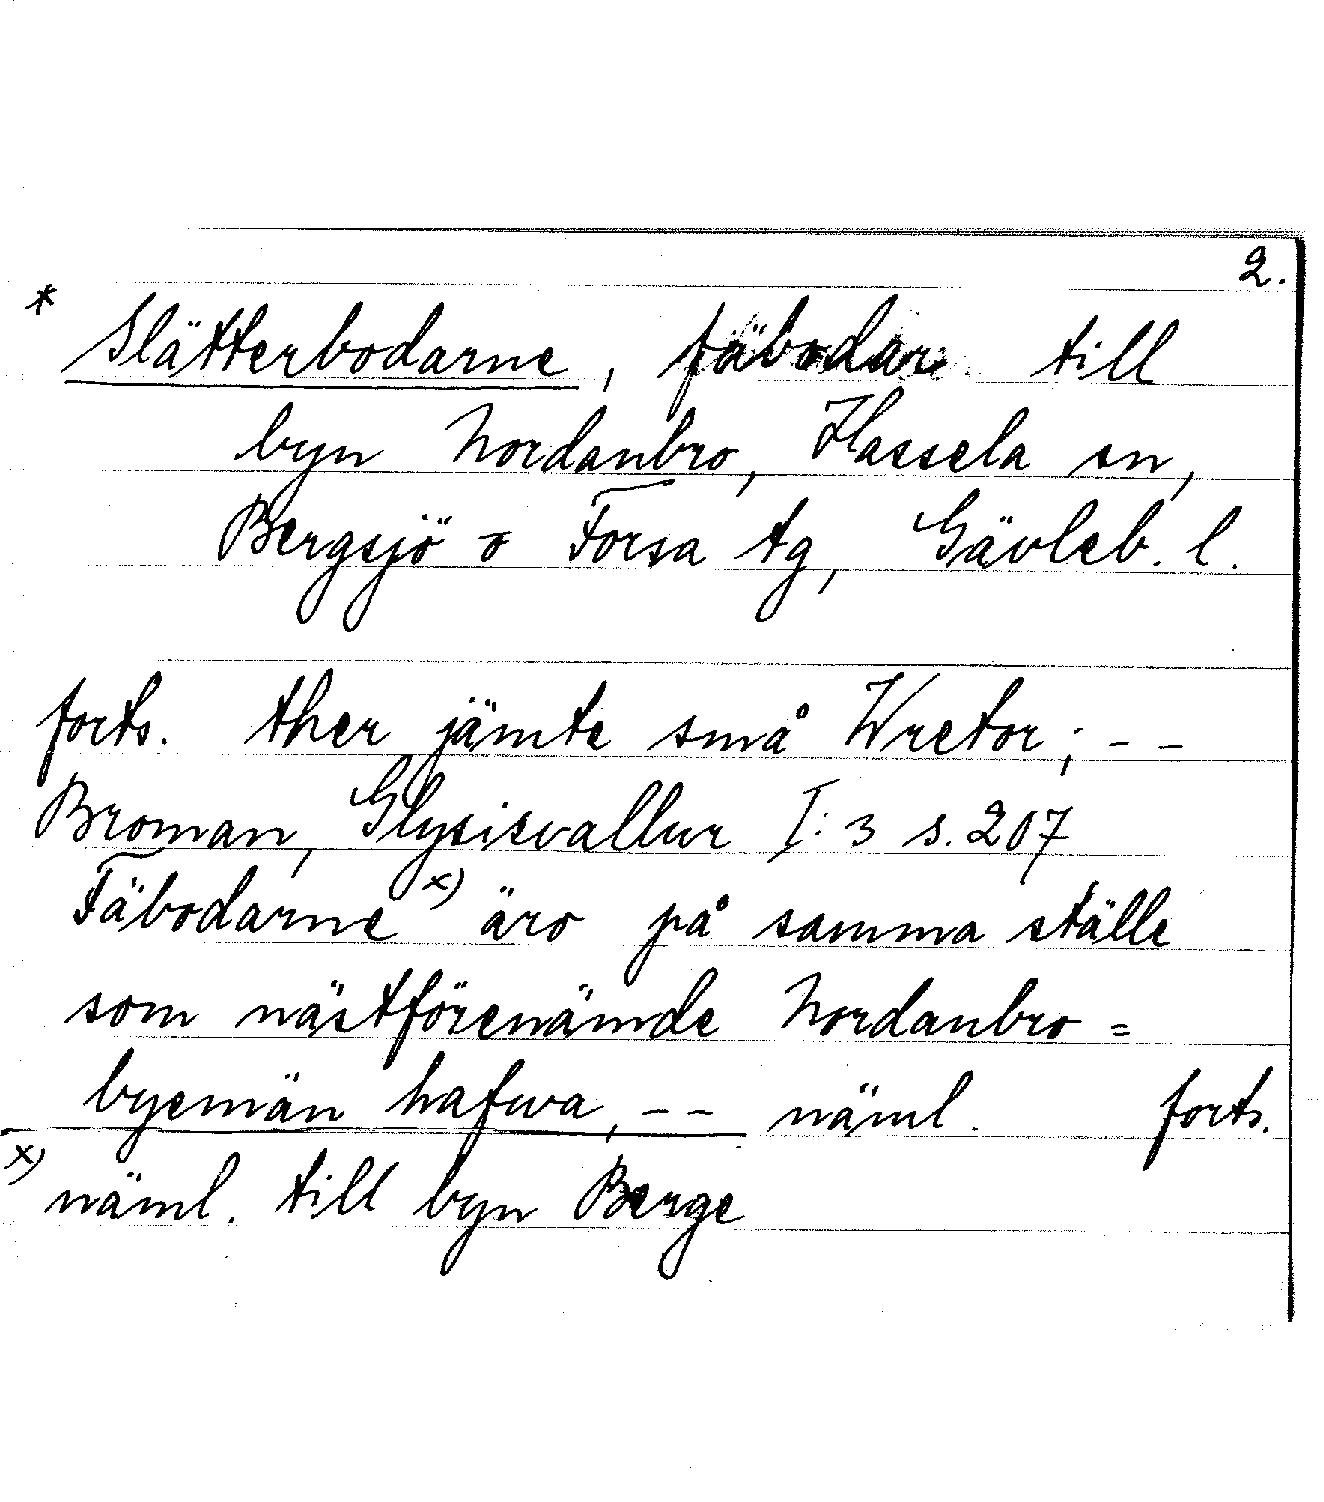 2.
* Slätterbodarne, fäbodar till
byn Nordanbro, Hassela sn,
Bergsjö o Forsa tg, Gävleb. l.
forts. ther jämte små Wretor; - -
Broman, Glysisvallur I:3 s. 207
Fäbodarne x) äro på samma ställe
som nästförenämde Nordanbro=
byemän hafwa, - - näml. forts.
x) näml. till byn Berge